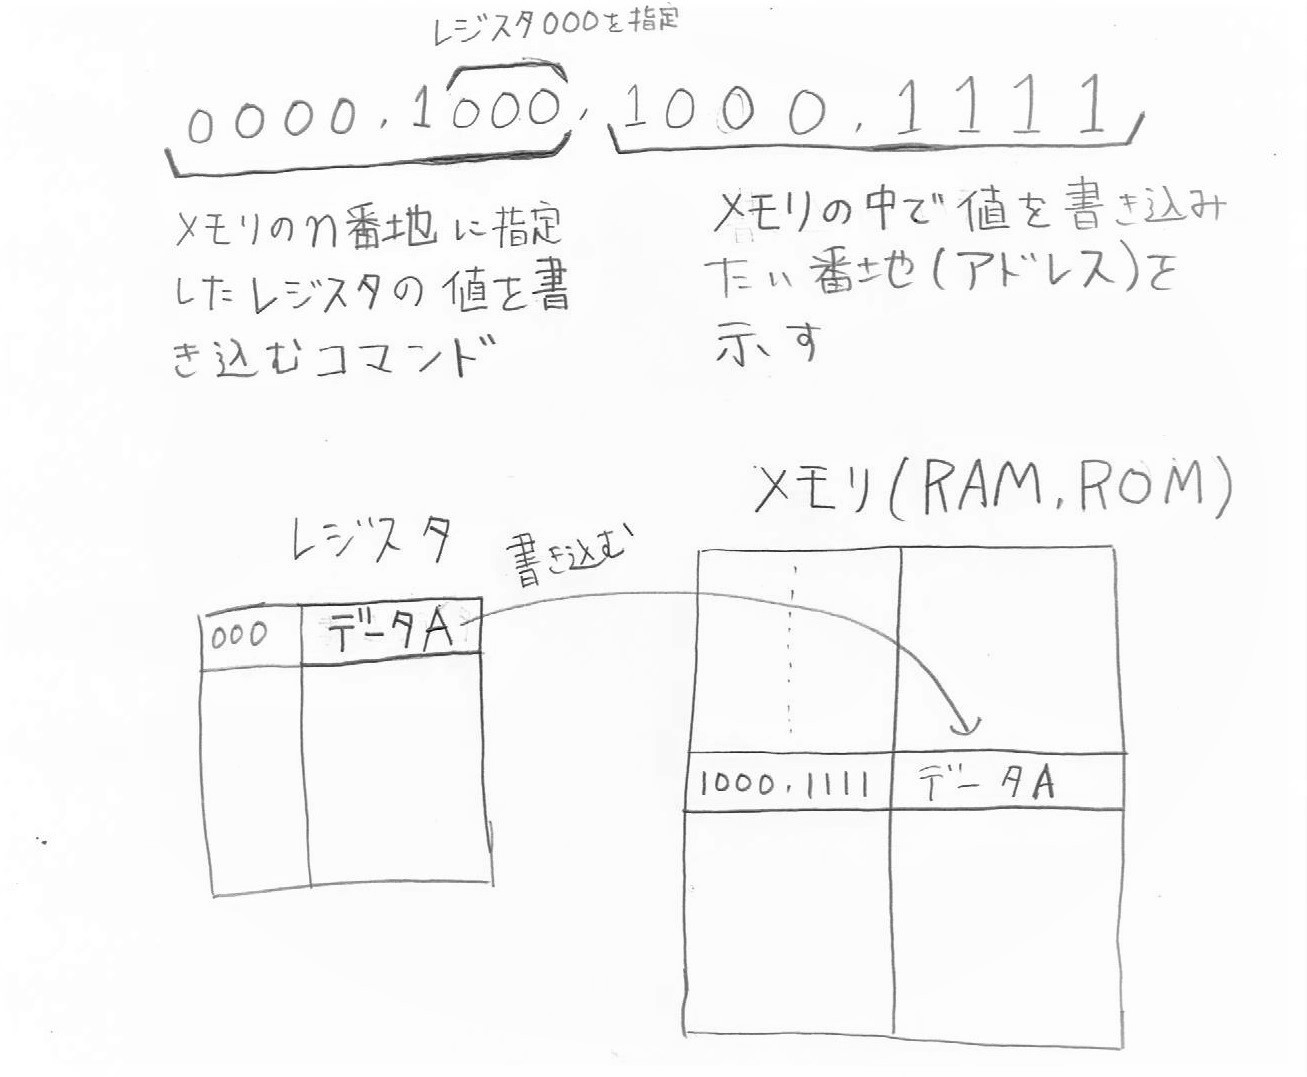 レジスタ000を指定
0000,1000,1000,1111
メモリのn番地に指定
したレジスタの値を書
き込むコマンド
メモリの中で値を書き込み
たい番地(アドレス)を
示す
メモリ(RAM,ROM)
レジスタ
書き込む
000 データA
1000,1111 データA